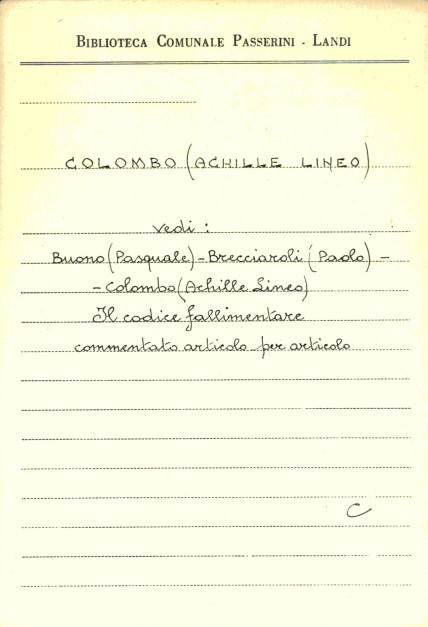 BIBLIOTECA COMUNALE PASSERINI - LANDI
COLOMBO (ACHILLE LINEO)
vedi :
Buono (Pasquale) - Brecciaroli (Paolo) -
- Colombo (Achille Lineo)
Il codice fallimentare
commentato articolo per articolo
C